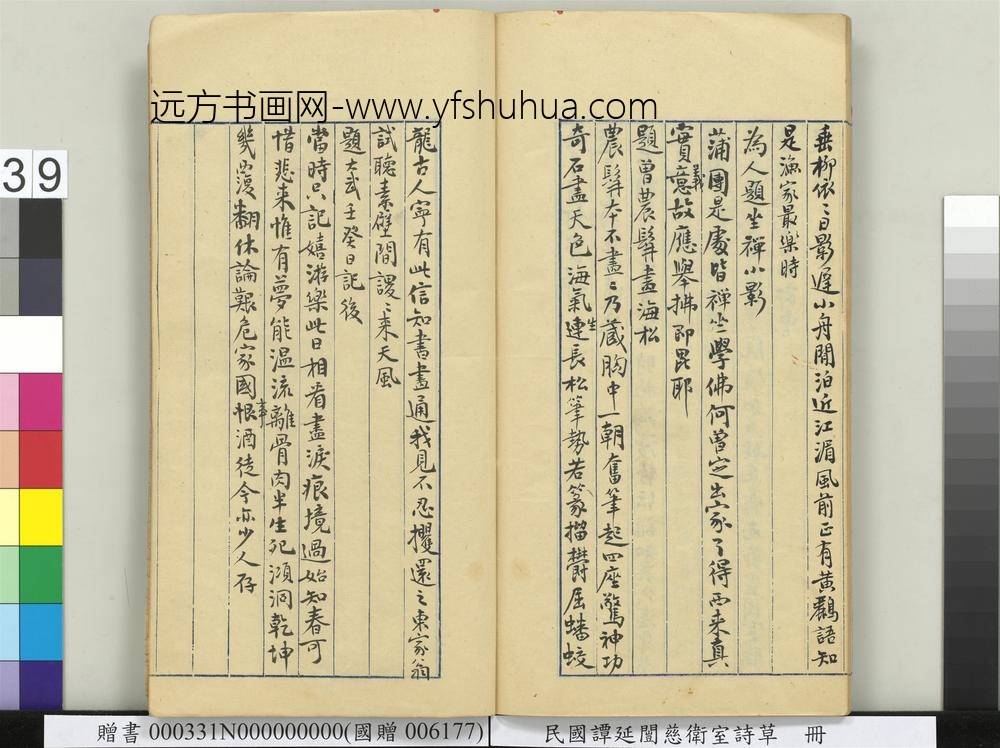 远方书画网-www.yfshuhua.com
39
垂柳依〻日影遲小舟閒泊近江湄風前正有黃鸝語知
是漁家最樂時
為人題坐禪小影
蒲團是處皆禪坐學佛何曾定出家了得西來真
實意義故應舉拂即毘耶
題曾農髯畫海松
農髯本不畫〻乃藏胸中一朝奮筆起四座驚神功
奇石盡天色海氣連生長松筆勢若篆籀欝屈蟠蛟
龍古人寧有此信知書畫通我見不忍攫還之東家翁
試聽素壁間謖〻來天風
題大武壬癸日記後
當時只記嬉游樂此日相看盡淚痕境過始知春可
惜悲來惟有夢能溫流離骨肉半生死澒洞乾坤
幾覆翻休論艱危家國恨事酒徒今亦少人存
贈書 000331N000000000(國贈 006177)
民國譚延闓慈衛室詩草 冊